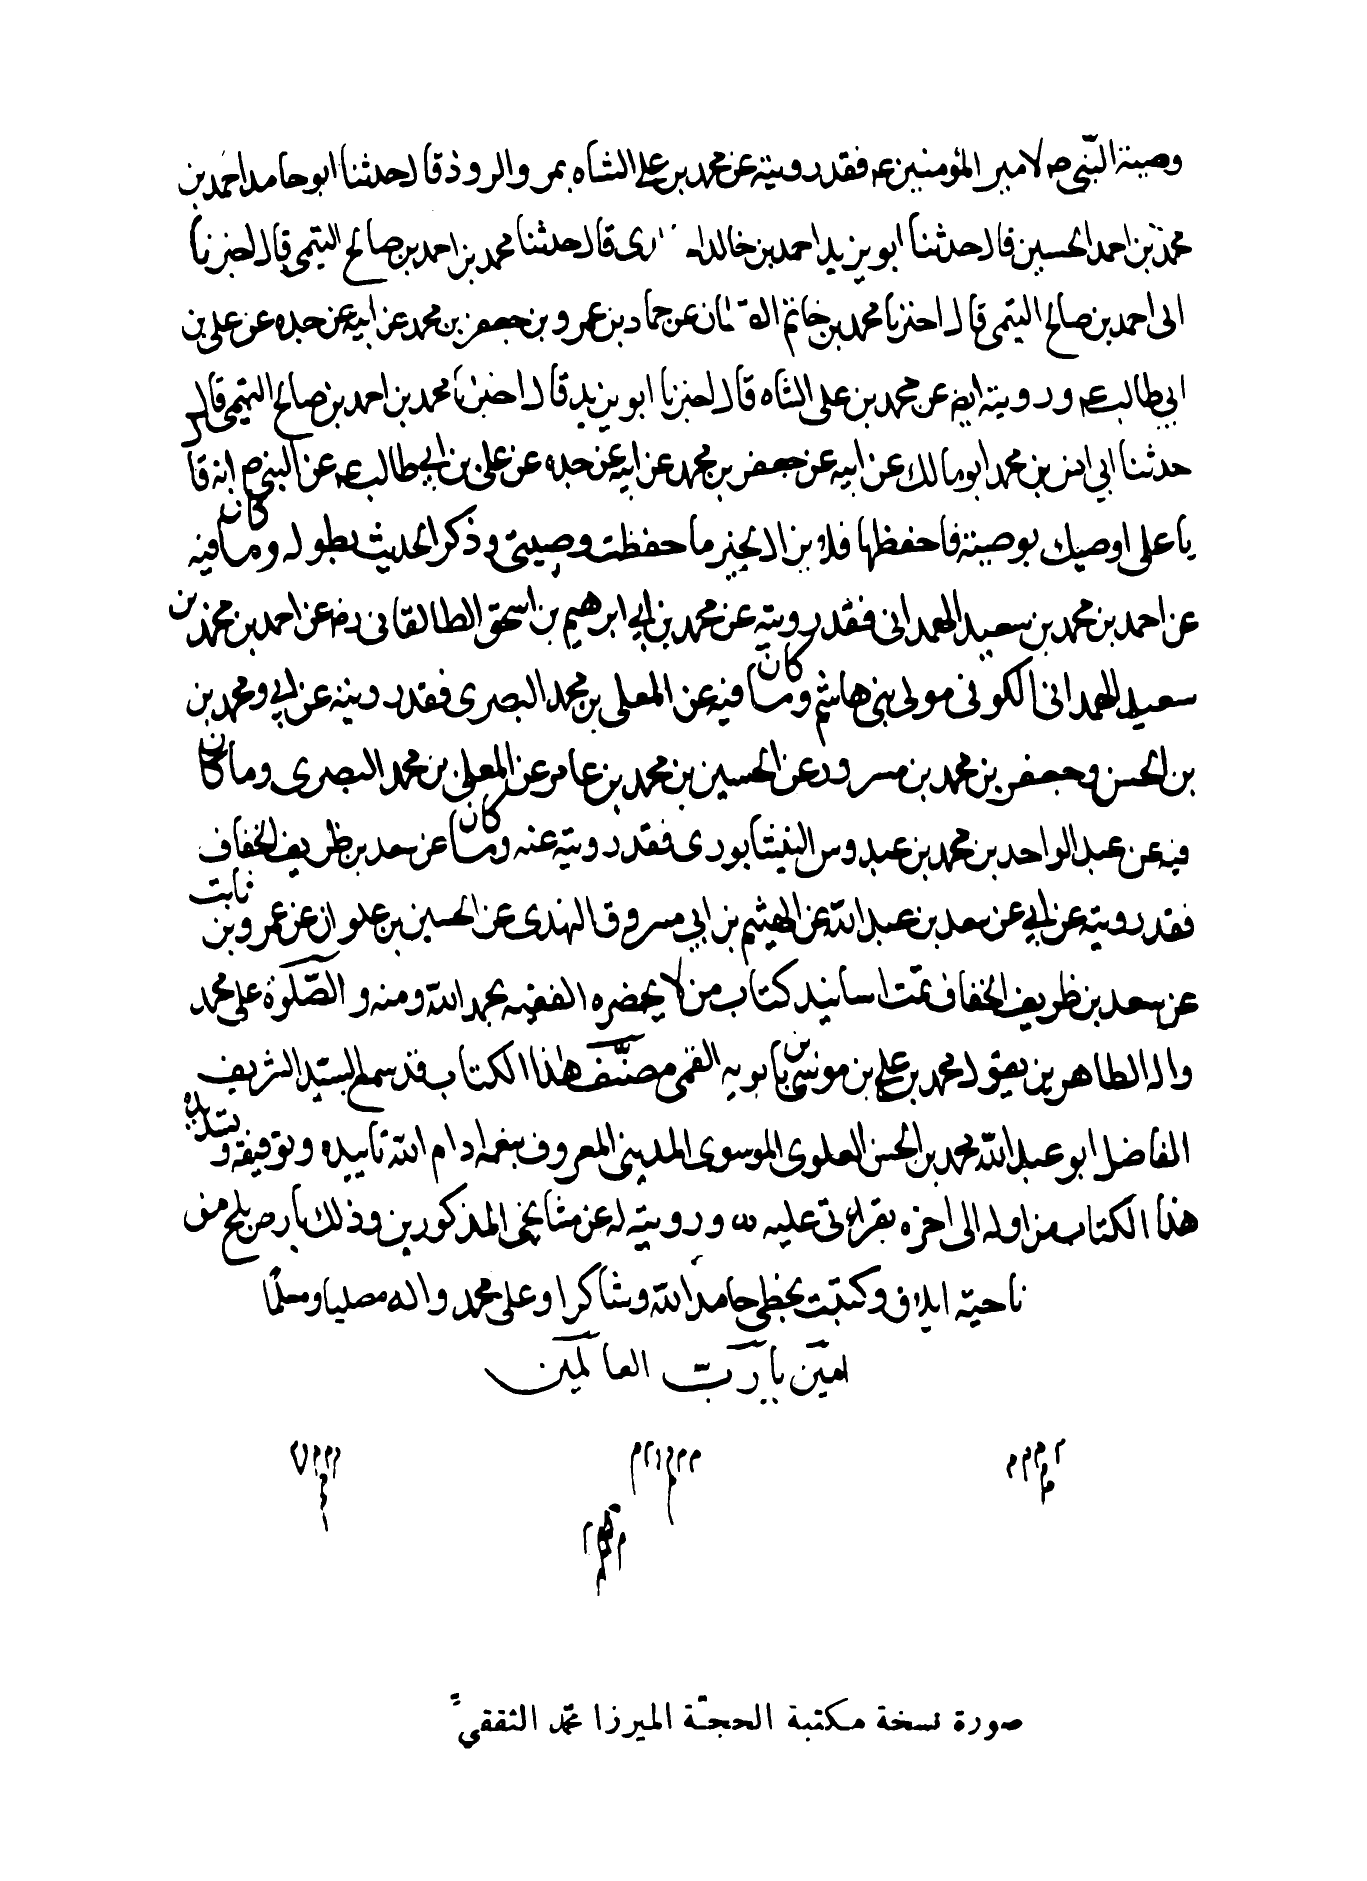 وصية النبی ص لامير المؤمنين عم فقد رويته عن محمد بن علی الشاه بمر والروذ قال حدثنا ابو حامد احمد بن
محمد بن احمد الحسين قال حدثنا ابو يزيد احمد بن خالد ا ری قال حدثنا محمد بن احمد بن صالح التيمی قال اخبرنا
ابی احمد بن صالح التيمی قال اخبرنا محمد بن حاتم ان عن حماد بن عمرو بن جعفر بن محمد عن ابيه عن جده عن علی بن
ابی طالب عم ورويته ايضا عن محمد بن علی الشاه قال اخبرنا ابو يزيد قال اخبرنا محمد بن احمد بن صالح التيمی قال
حدثنا ابی انس بن محمد ابو مالك عن ابيه عن جعفر بن محمد عن ابيه عن جده عن علی بن ابی طالب عم عن النبی ص انه قا
يا علی اوصيك بوصية فاحفظها فلا بزال بخير ما حفظت وصيتی وذكر الحديث بطوله وما كان فيه
عن احمد بن محمد بن سعيد الهمدانی فقد رويته عن محمد بن ابی ابرهيم بن اسحق الطالقانی رضـ عن احمد بن محمد بن
سعيد الهمدانی الكوفی مولی بنی هاشم وما كان فيه عن المعلی بن محمد البصری فقد رويته عن ابی ومحمد بن
بن الحسن وجعفر بن محمد بن مسرور عن الحسين بن محمد بن عامر عن المعلی بن محمد البصری وما كان
فيه عن عبد الواحد بن محمد بن عبدوس النيشابوری فقد رويته عنه وما كان عن سعد بن ظريف الخفاف
فقد رويته عن ابی عن سعد بن عبد الله عن الهيثم بن ابی مسروق النهدی عن الحسين بن علوان عن عمرو بن ثابت
عن سعد بن ظريف الخفاف تمت اسانيد كتاب من لا يحضره الفقيه بحمد الله ومنه والصلوة علی محمد
واله الطاهرين يقول محمد بن علی بن موسی بن بابويه القمی مصنف هذا الكتاب قد سمع السيد الشريف
الفاضل ابو عبد الله محمد بن الحسن العلوی الموسوی المدينی المعروف بنعمه ادام الله تاييده وتوفيقه وتسديده
هذا الكتاب من اوله الی اخره بقرائتی عليه ورويته له عن مشايخی المذكورين وذلك بارض بلخ من
ناحية ايلاق وكتبت بخطی حامدا لله وشاكرا وعلی محمد واله مصليا ومسلما
امين يا رب العالمين
صورة نسخة مكتبة الحجّة الميرزا محمّد الثقفیّ